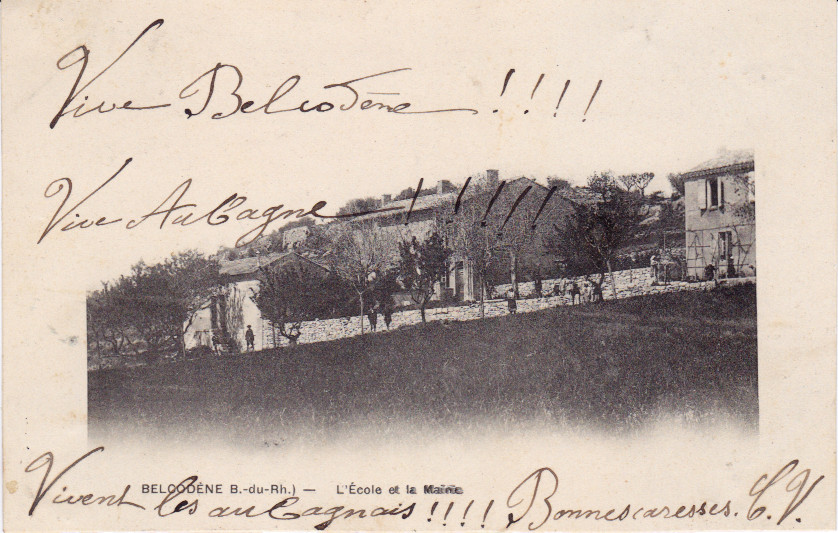 Vive Belcodène !!!!
Vive Aubagne !!!!!
BELCODÈNE B.-du-Rh.) — L'École et la Mairie
Vivent les aubagnais !!!! Bonnes caresses. C. V.